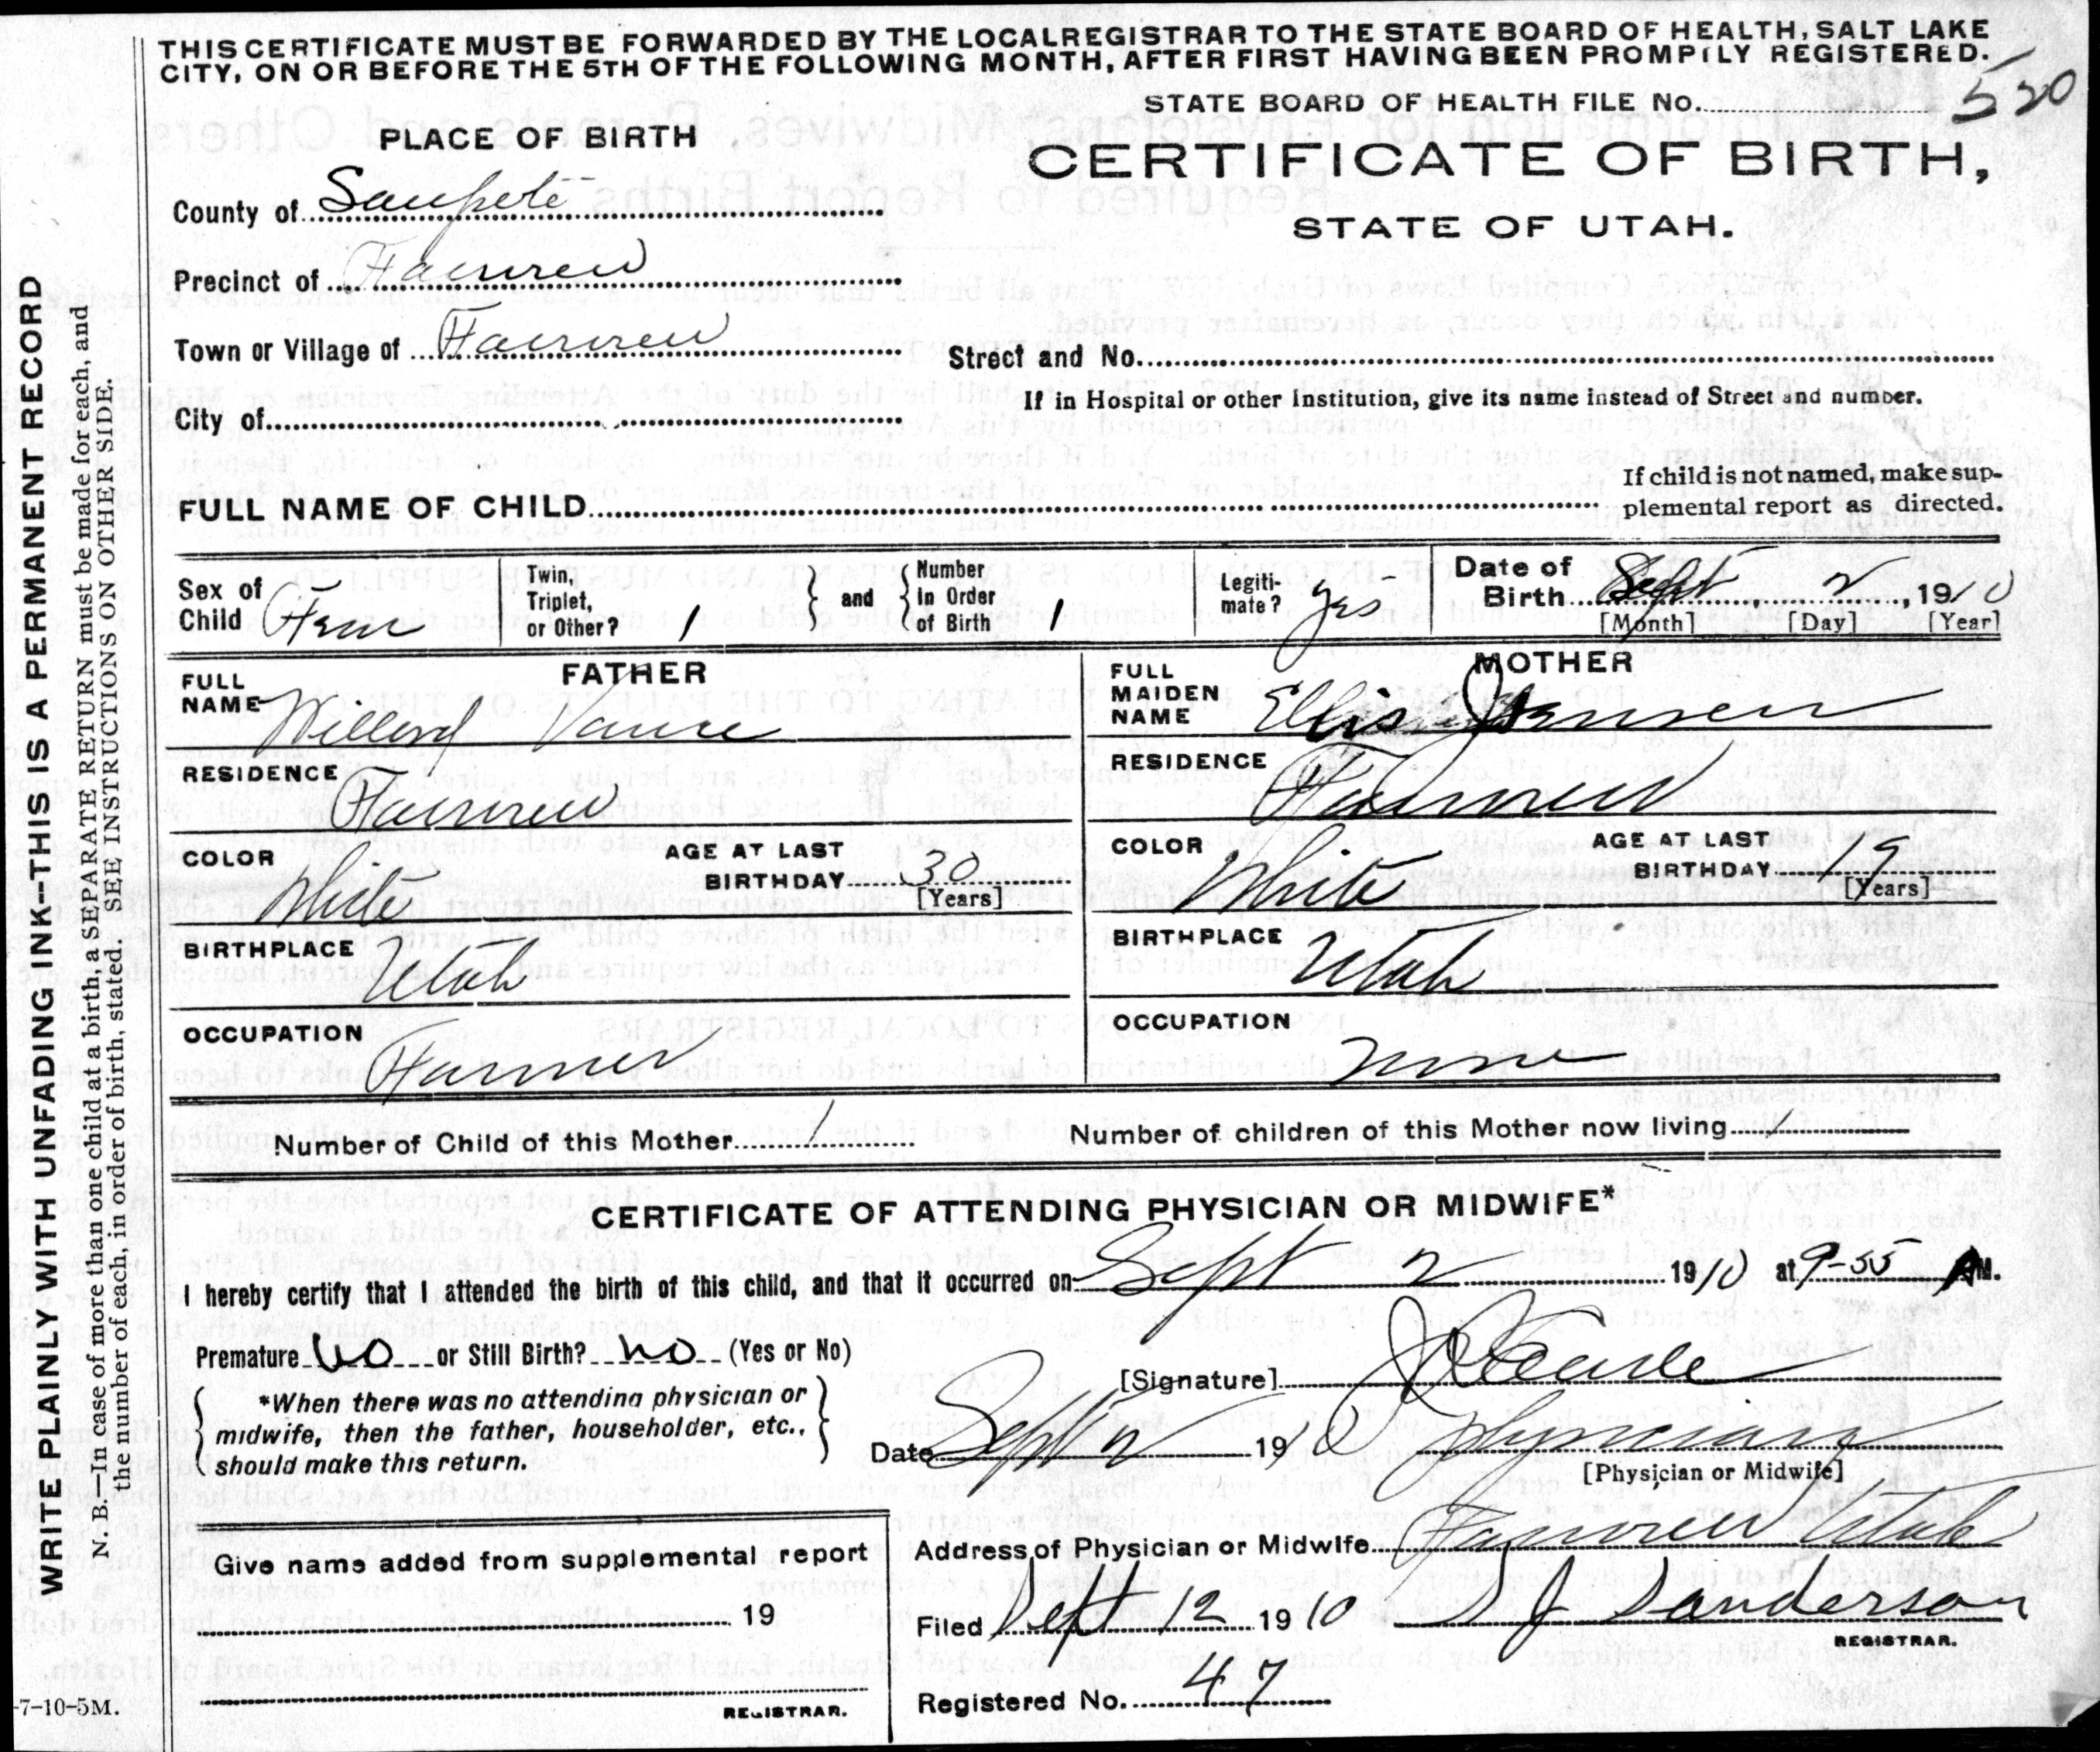 THIS CERTIFICATE MUST BE FORWARDED BY THE LOCAL REGISTRAR TO THE STATE BOARD OF HEALTH, SALT LAKE
CITY, ON OR BEFORE THE 5TH OF THE FOLLOWING MONTH, AFTER FIRST HAVING BEEN PROMPTLY REGISTERED.
STATE BOARD OF HEALTH FILE No. 520
PLACE OF BIRTH
CERTIFICATE OF BIRTH,
STATE OF UTAH.
County of Sanpete
Precinct of Fairview
Town or Village of Fairview
Street and No.
City of
If in Hospital or other Institution, give its name instead of Street and number.
FULL NAME OF CHILD
If child is not named, make sup-
plemental report as directed.
Sex of Child Fem
Twin, Triplet, or Other? 1
and
Number in Order of Birth 1
Legiti-mate? yes
Date of Birth Sept 2, 1910
[Month] [Day] [Year]
FATHER
FULL NAME Willard Vance
RESIDENCE Fairview
COLOR White
AGE AT LAST BIRTHDAY 30
[Years]
BIRTHPLACE Utah
OCCUPATION Farmer
MOTHER
FULL MAIDEN NAME Jensen
RESIDENCE Fairview
COLOR White
AGE AT LAST BIRTHDAY 19
[Years]
BIRTHPLACE Utah
OCCUPATION None
Number of Child of this Mother 1
Number of children of this Mother now living 1
CERTIFICATE OF ATTENDING PHYSICIAN OR MIDWIFE*
I hereby certify that I attended the birth of this child, and that it occurred on Sept 2 1910 at 9-55 AM.
Premature no or Still Birth? no (Yes or No)
[Signature]
*When there was no attending physician or
midwife, then the father, householder, etc.,
should make this return.
Date Sept 2 1910 physician
[Physician or Midwife]
Give name added from supplemental report
19
REGISTRAR.
Address of Physician or Midwife Fairview Utah
Filed Sept 12 1910 Sanderson
REGISTRAR.
Registered No. 47
WRITE PLAINLY WITH UNFADING INK--THIS IS A PERMANENT RECORD
N. B.--In case of more than one child at a birth, a SEPARATE RETURN must be made for each, and
the number of each, in order of birth, stated. SEE INSTRUCTIONS ON OTHER SIDE.
-7-10-5M.